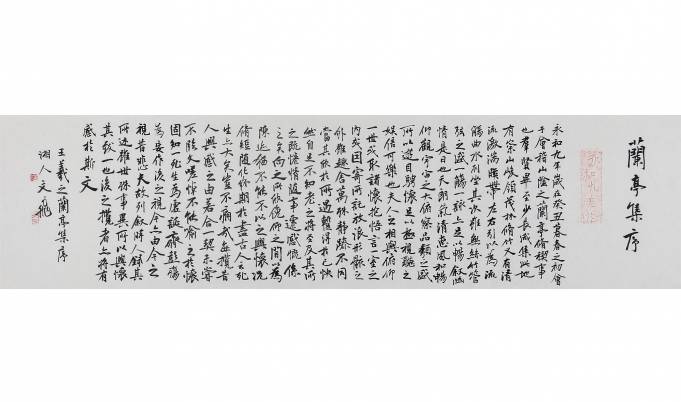 蘭亭集序
永和九年歲在癸丑暮春之初會
于會稽山陰之蘭亭脩禊事
也羣賢畢至少長咸集此地
有崇山峻領茂林脩竹又有清
流激湍暎帶左右引以為流
觴曲水列坐其次雖無絲竹管
弦之盛一觴一詠亦足以暢敘幽
情是日也天朗氣清惠風和暢
仰觀宇宙之大俯察品類之盛
所以遊目騁懷足以極視聽之
娛信可樂也夫人之相與俯仰
一世或取諸懷抱悟言一室之
內或因寄所託放浪形骸之
外雖趣舍萬殊靜躁不同
當其欣於所遇暫得於己怏
然自足不知老之將至及其所
之既惓情隨事遷感慨係
之矣向之所欣俛仰之間以為
陳迹猶不能不以之興懷況
脩短隨化終期於盡古人云死
生亦大矣豈不痛哉每攬昔
人興感之由若合一契未嘗
不臨文嗟悼不能喻之於懷
固知一死生為虛誕齊彭殤
為妄作後之視今亦由今之
視昔悲夫故列敘時人錄其
所述雖世殊事異所以興懷
其致一也後之攬者亦將有
感於斯文
王羲之蘭亭集序
湖人文飛